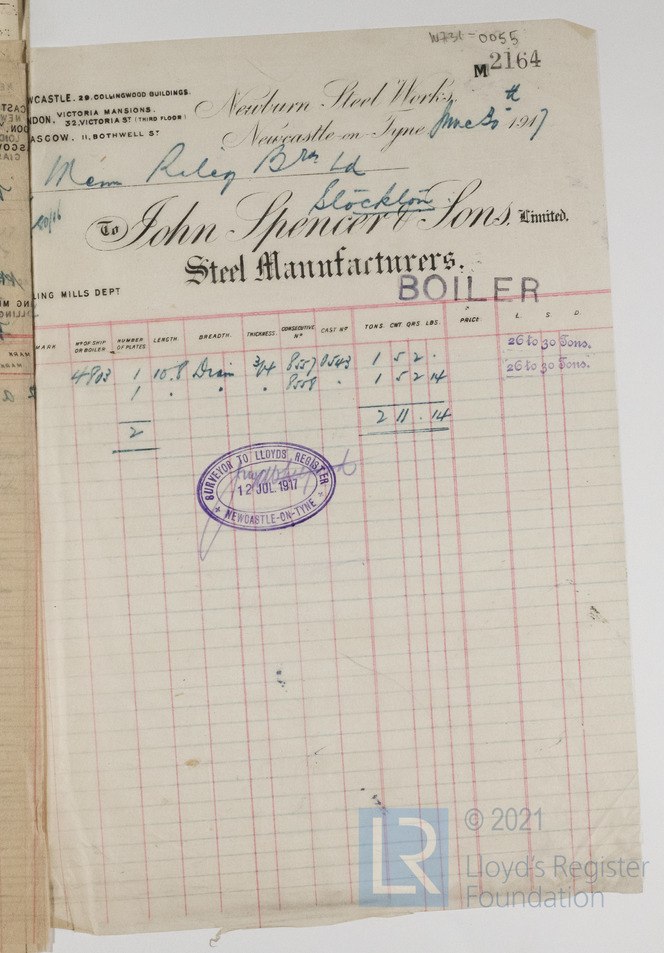 W731-0055
M2164
WCASTLE. 29. COLLINGWOOD BUILDINGS.
NDON. VICTORIA MANSIONS.
32, VICTORIA ST (THIRD FLOOR)
ASGOW. 11, BOTHWELL ST
Newburn Steel Works,
Newcastle-on-Tyne June 30th 1917
Riley Bros Ld
Stockton
To John Spencer & Sons, Limited.
Steel Manufacturers.
LING MILLS DEPT
BOILER
MARK Nº OF SHIP OR BOILER NUMBER OF PLATES LENGTH. BREADTH. THICKNESS. CONSECUTIVE Nº CAST Nº TONS. CWT. QRS. LBS. PRICE. L. S. D.
26 to 30 Tons.
4803 1 10.8 Diam 3/4 8557 0543 1 5 2 .
26 to 30 Tons.
1 " " 8558 " 1 5 2 14
2 2 11 . 14
SURVEYOR TO LLOYDS REGISTER
12 JUL 1917
NEWCASTLE-ON-TYNE
LR © 2021
Lloyd's Register
Foundation